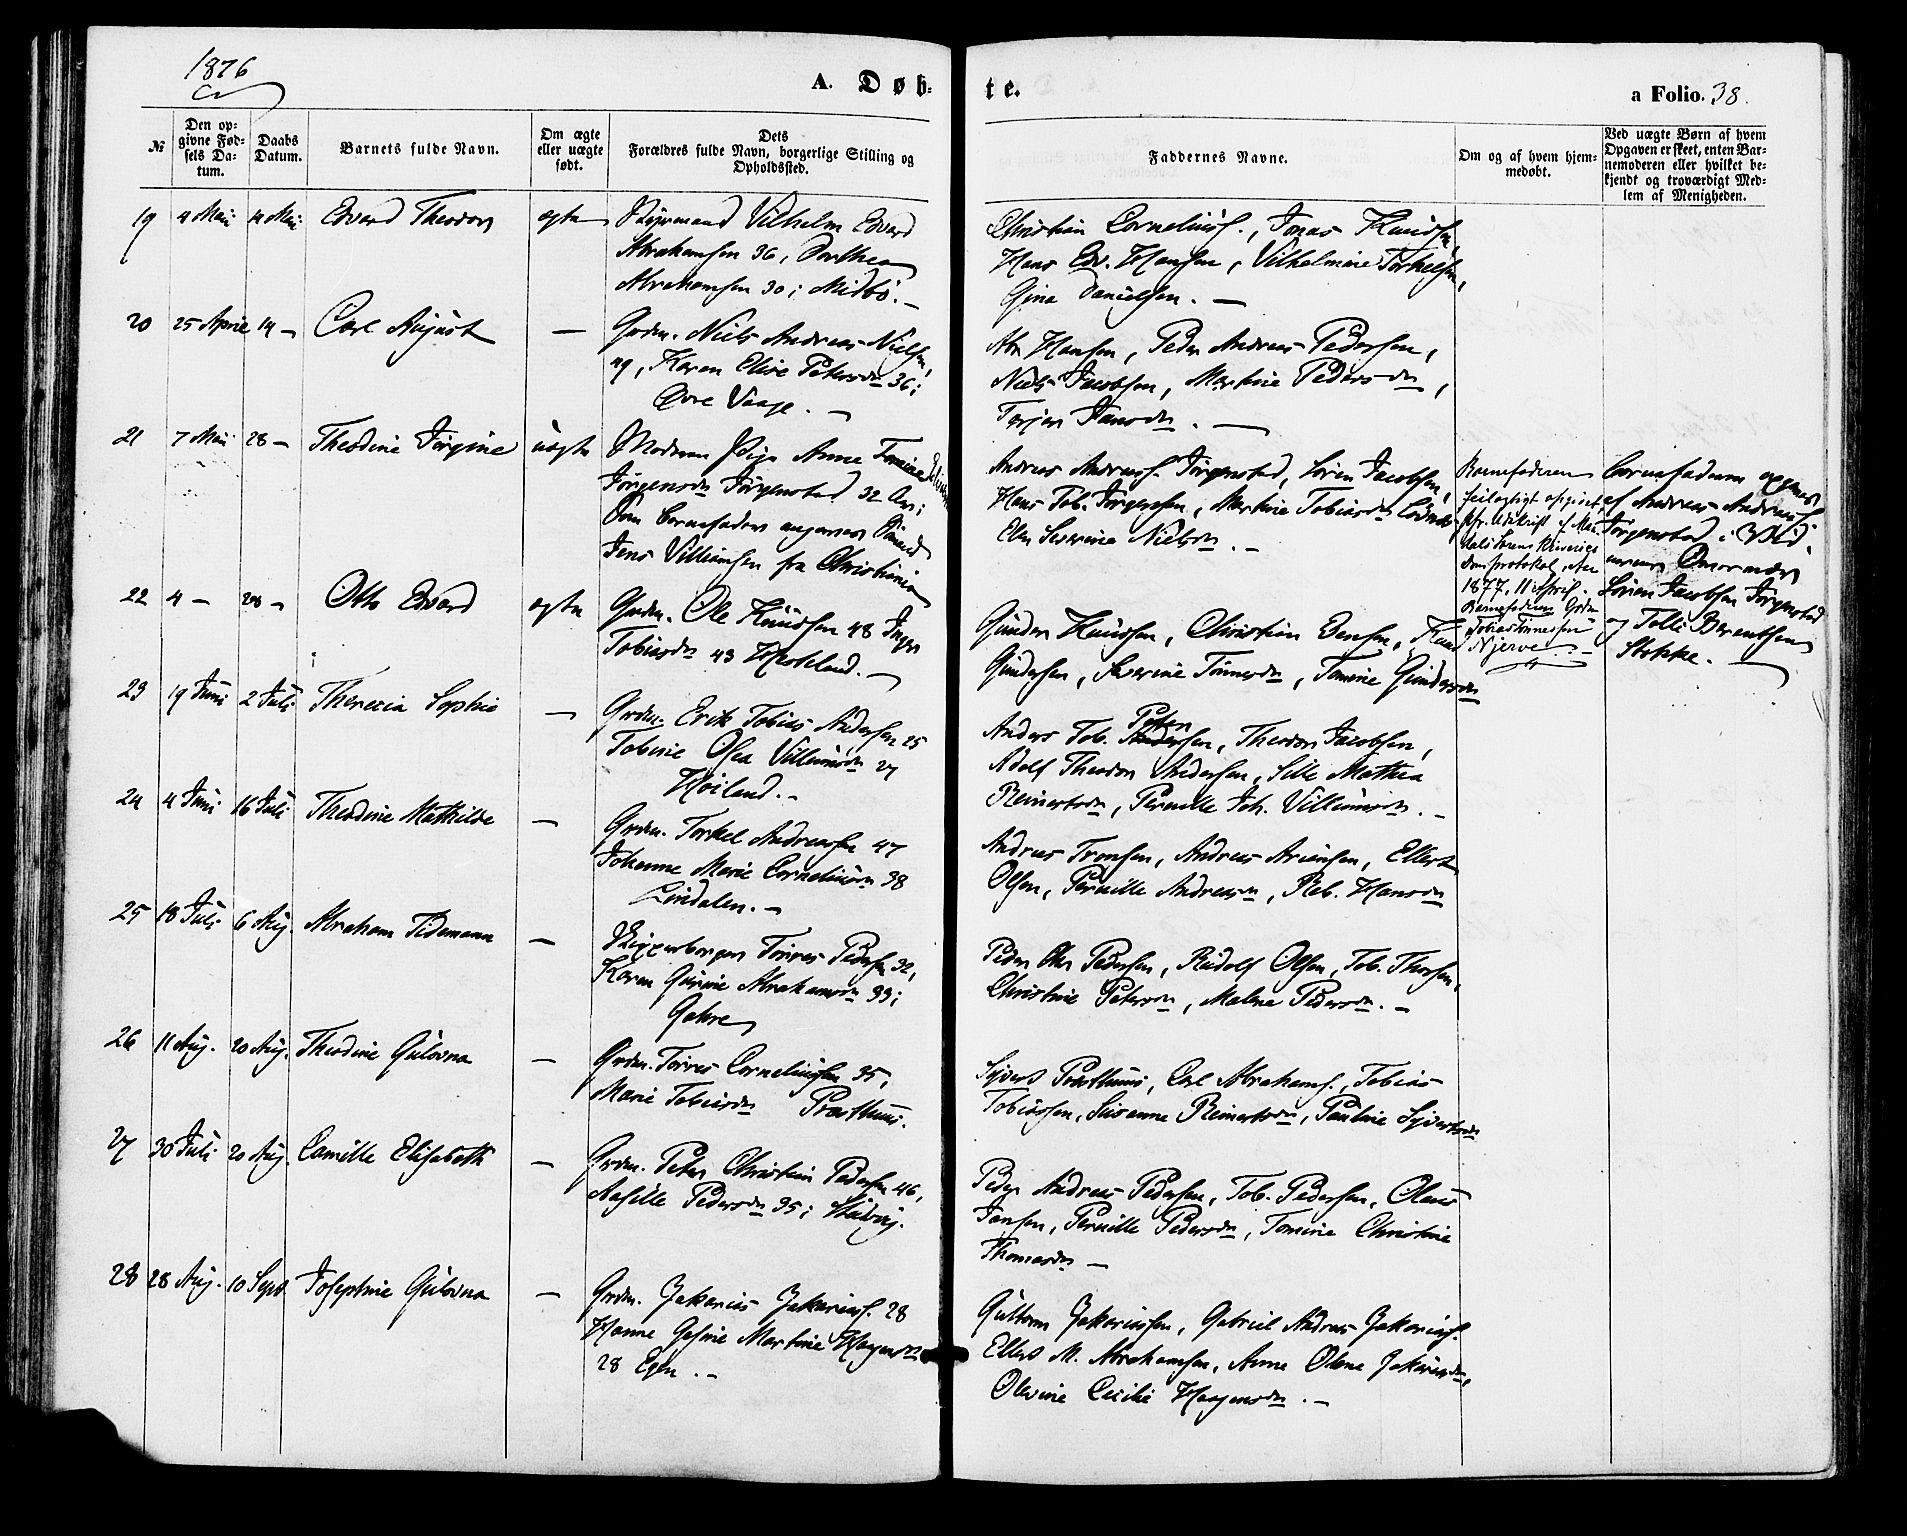 1876
A. Døb-
te.
a Folio. 38.
№
Den op-
givne Fød-
sels Da-
tum.
Daabs
Datum.
Barnets fulde Navn.
Om ægte
eller uægte
født.
Dets
Forældres fulde Navn, borgerlige Stilling og
Opholdssted.
Faddernes Navne.
Om og af hvem hjem-
medøbt.
Ved uægte Børn af hvem
Opgaven er skeet, enten Bar-
nemoderen eller hvilket be-
kjendt og troværdigt Med-
lem af Menigheden.
19 4 Mai 14 Mai Edvard Theodor ægte Vilhelm Edvard
Abrahamsen 36, Dorthea
Abrahamsen 30; Midbö. -
Christian Corneliusf., Jonas Knudsen,
Hans Edv. Hansen, Vilhelmine Torkelsen,
Gina Danielsen. -
20 25 April 14 - Carl August - Grdm. Niels Andreas Nielsen,
Karen Elise Petersdn 36;
Övre Vaage. -
Abr Hansen, Peder Andreas Pedersen,
Niels Jacobsen, Martine Pedersdn,
Torjer Jansdn. -
21 7 Mai 28 - Theodine Jörgine uægte Moderen Pige Anne Tomine
Jörgensdn Jörgenstad 32 Aar;
Som barnefader angives
Jens Villumsen fra Christiania
Andreas Andreasf. Jörgenstad, Sören Jacobsen,
Hans Tob. Jörgensen, Martine Tobiasdn
Elen Severine Nielsdn. -
Barnefaderen
feilagtigt opgivet,
cfr. Udskrift af Man-
dals Sorenskriveries
protokol, Aar
1877, 11 April.
Barnefaderen Grdm
Tobias Tönnessen
Njerve. -
Barnefaderen opgivet
af Andreas Andreasf.
Jörgenstad i
Sören Jacobsen Jörgenstad
og Tolli Berentsen
Stokke. -
22 4 - 28 - Otto Edvard ægte Grdm. Ole Knudsen 48 Inger
Tobiasdn 43 Haaland. -
Gunder Knudsen, Christian Jensen, Knud
Gundersen, Severine Tönnesdn, Tomine Gundersdn
23 19 Juni 2 Juli Therecia Sophie - Grdm. Erik Tobias Andersen 25
Tobine Olea Villumsdn 27
Höiland. -
Peter
Anders Tob. Andersen, Theodor Jacobsen,
Adolf Theodor Andersen, Sille Mathea
Reinertsdn, Pernille Joh. Villumsdn. -
24 4 Juni 16 Juli Theodine Mathilde - Grdm. Torkel Andreassen 47
Johanne Marie Corneliusdn 38
Lindalen. -
Andreas Tronsen, Andreas Ariansen, Ellert
Olsen, Pernille Andreasdn, Reb. Hansdn
25 18 Juli 6 Aug. Abraham Tidemann - Törres Pedersen 32,
Karen Gurine Abrahamsdn 33;
Gahre
Peder Pedersen, Rudolf Olsen, Tob. Thorsen,
Christine Petersdn, Malene Pedersdn. -
26 11 Aug. 20 Aug. Theodine Gulovna - Grdm. Törres Corneliussen 35,
Marie Tobiasdn Presthuus.
Syvert Presthuus, Carl Abrahamf., Tobias
Tobiassen, Susanne Reinertsdn, Pauline Syvertsdn
27 30 Juli 20 Aug. Camille Elisabeth - Grdm. Peter Christian Pedersen 46,
Aasille Pedersdn 35;
Peder Andreas Pedersen, Tob. Pedersen, Olaus
Jansen, Pernille Pedersdn, Tomine Christine
Thomasdn -
28 28 Aug. 10 Sept Josephine Gulovna - Grdm. Zakarias Zakariasf. 28
Hanne Gesine Martine Haagensdn
28 Egen. -
Guttorm Zakariassen, Gabriel Andreas Zakariasf.
Ellert M. Abrahamsen, Anne Olene Zakariasdn,
Olevine Cecilie Haagensdn. -